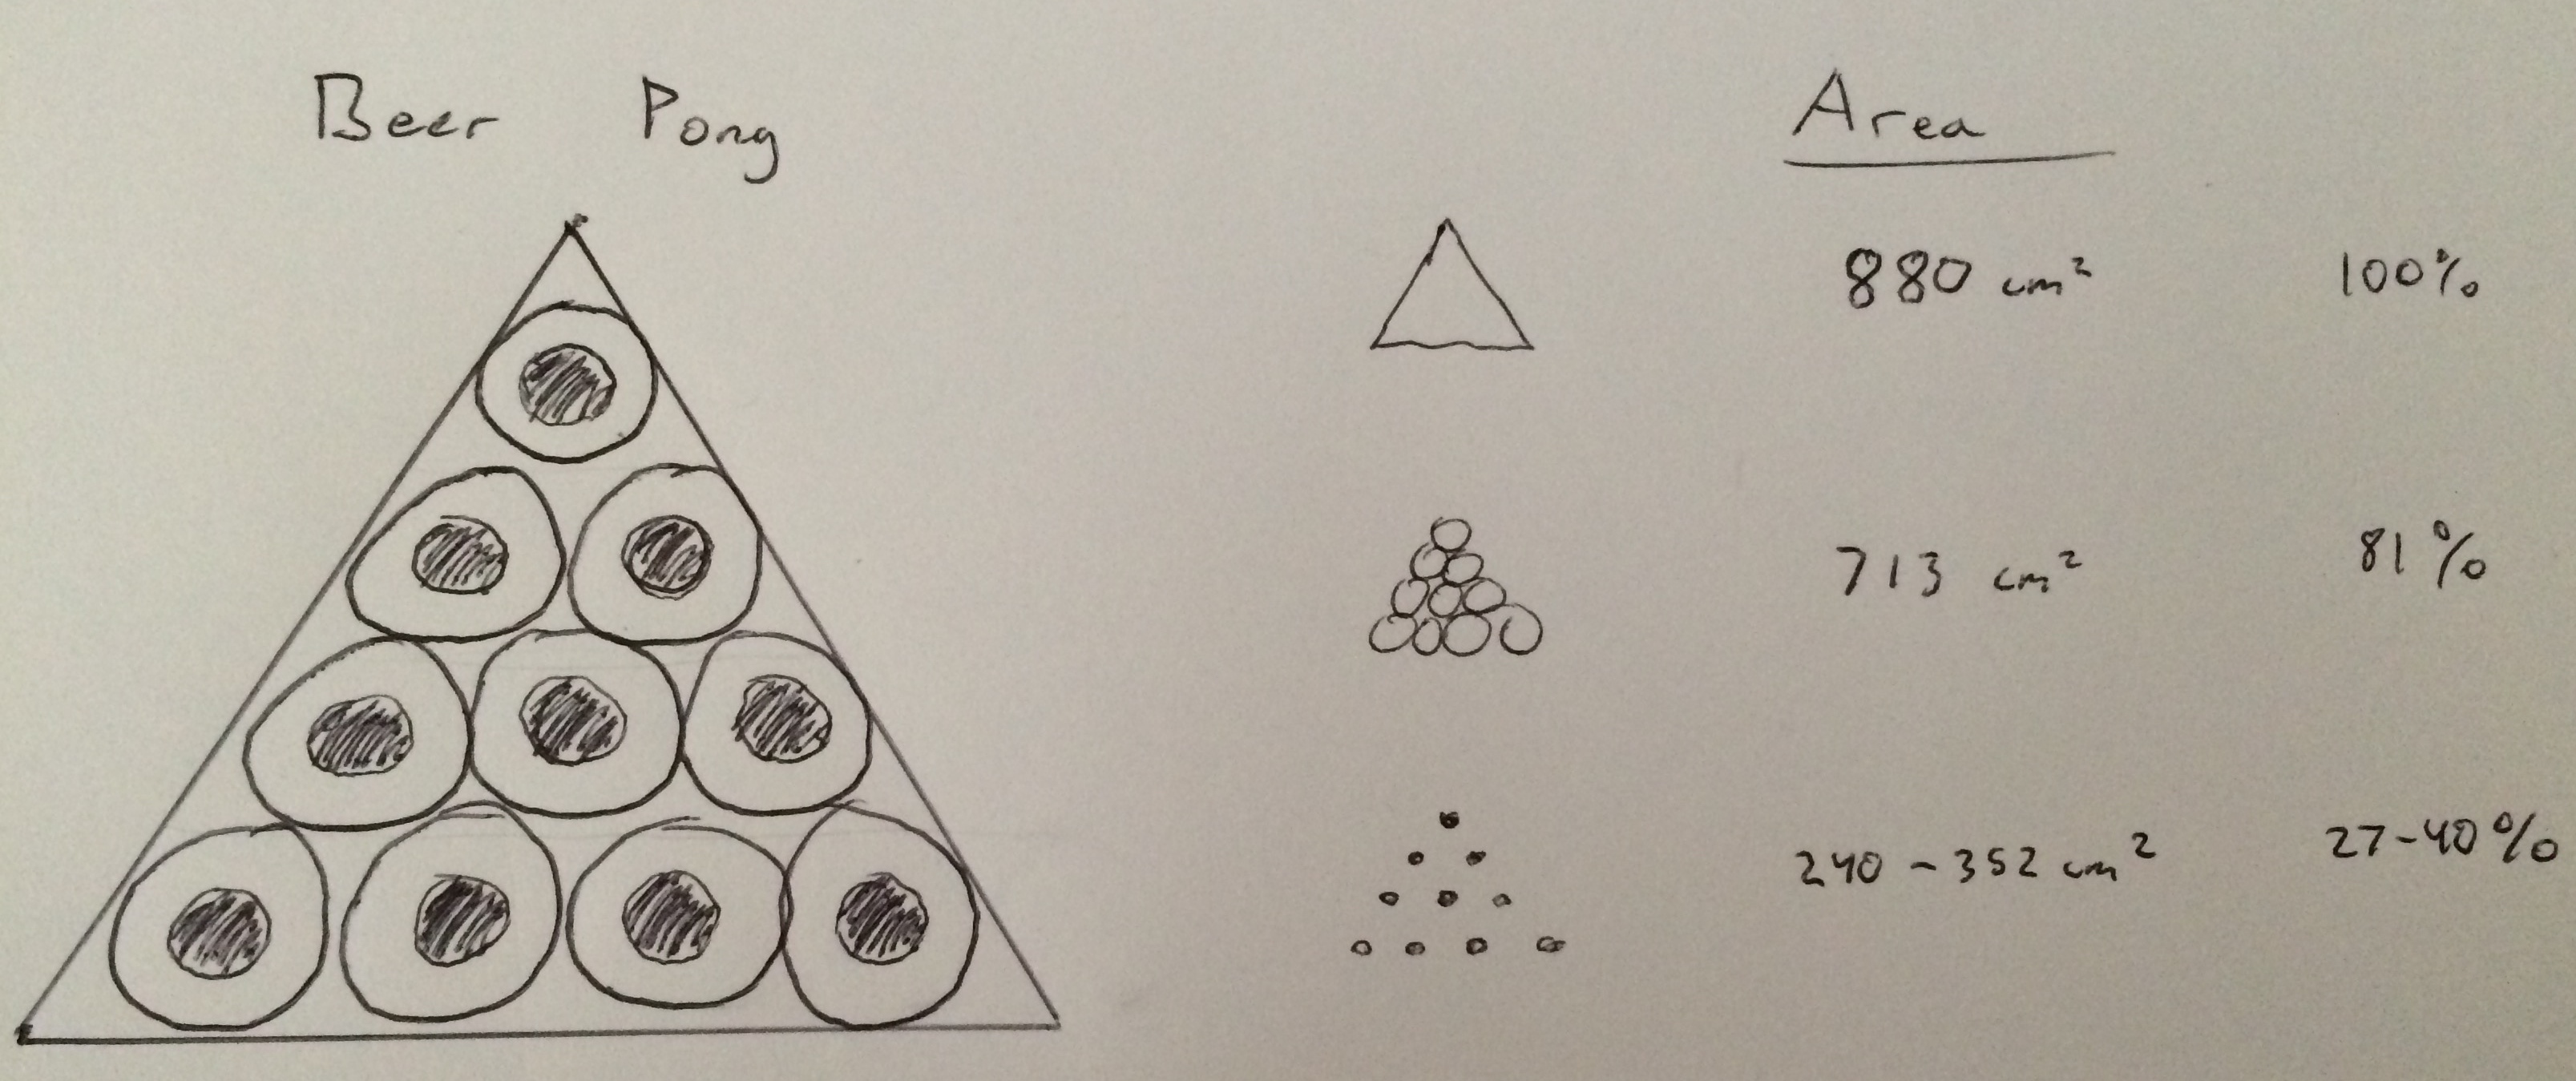 Beer Pong
Area
880 cm² 100%
713 cm² 81%
240 - 352 cm² 27-40%